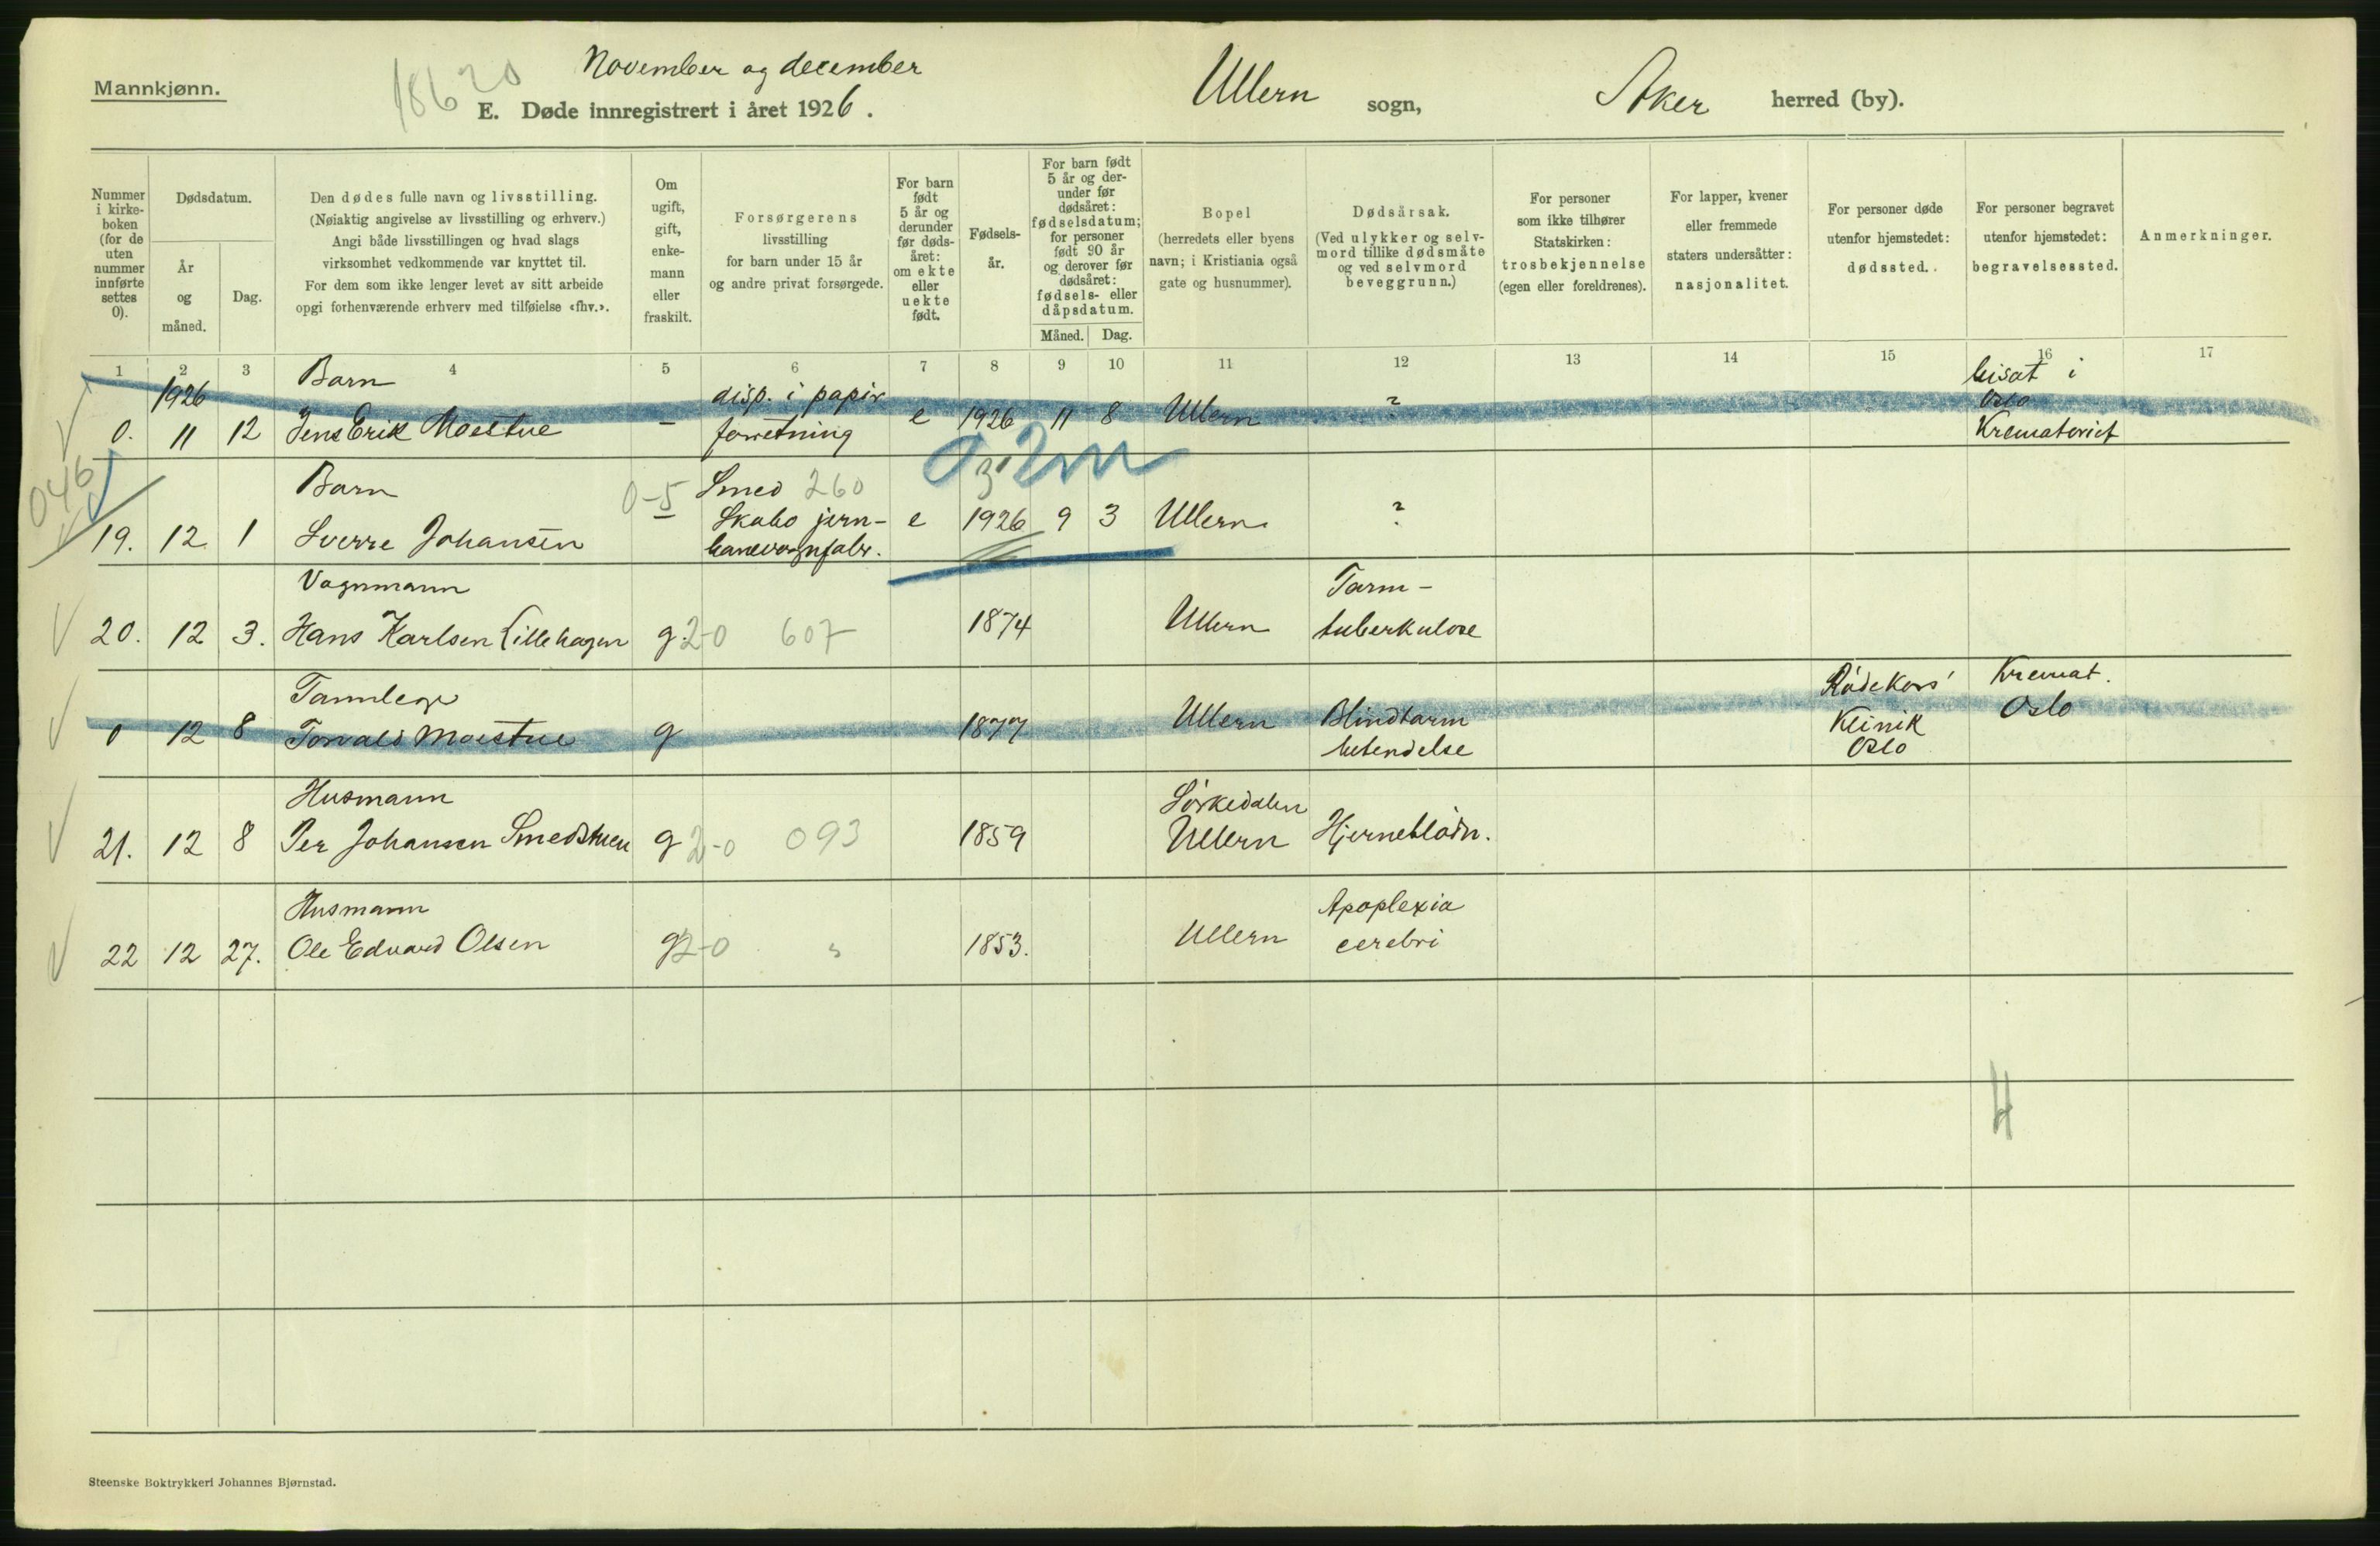 Mannkjønn.
18620
November og december
E. Døde innregistrert i året 1926.
Ullern sogn,
Aker herred (by).
Nummer i kirke-boken (for de uten nummer innførte settes 0).
Dødsdatum.
År og måned.
Dag.
Den dødes fulle navn og livsstilling.
(Nøiaktig angivelse av livsstilling og erhverv.)
Angi både livsstillingen og hvad slags
virksomhet vedkommende var knyttet til.
For dem som ikke lenger levet av sitt arbeide
opgi forhenværende erhverv med tilføielse «fhv.».
Om ugift, gift, enke-mann eller fraskilt.
Forsørgerens
livsstilling
for barn under 15 år
og andre privat forsørgede.
For barn født 5 år og derunder før døds-året: om ekte eller uekte født.
Fødsels-år.
For barn født 5 år og der-under før dødsåret: fødselsdatum; for personer født 90 år og derover før dødsåret: fødsels- eller dåpsdatum.
Måned. Dag.
Bopel
(herredets eller byens
navn; i Kristiania også
gate og husnummer).
Dødsårsak.
(Ved ulykker og selv-
mord tillike dødsmåte
og ved selvmord
beveggrunn.)
For personer
som ikke tilhører
Statskirken:
trosbekjennelse
(egen eller foreldrenes).
For lapper, kvener
eller fremmede
staters undersåtter:
nasjonalitet.
For personer døde
utenfor hjemstedet:
dødssted.
For personer begravet
utenfor hjemstedet:
begravelsessted.
Anmerkninger.
1 2 3 4 5 6 7 8 9 10 11 12 13 14 15 16 17
1926 Barn disp. i papir bisat i
Oslo
0. 11 12 Jens Erik Moestue - forretning e 1926 11 8 Ullern ? Krematoriet
046
Barn 0-5 Smed 260 3
19. 12 1 Sverre Johansen - Skabo jern- e 1926 9 3 Ullern ?
banevognfabr.
Vognmann Tarm-
20. 12 3. Hans Karlsen Lillehagen g. 2-0 607 1874 Ullern tuberkulose
Tannlege Rødekors' Kremat.
0 12 8 Torvald Moestue g 1877 Ullern Blindtarm Klinik Oslo
betendelse Oslo
Husmann Sørkedalen
21. 12 8 Per Johansen Smedstuen g 2-0 093 1859 Ullern Hjerneblødn.
Husmann Apoplexia
22 12 27. Ole Edvard Olsen g 2-0 1853. Ullern cerebri
Steenske Boktrykkeri Johannes Bjørnstad.